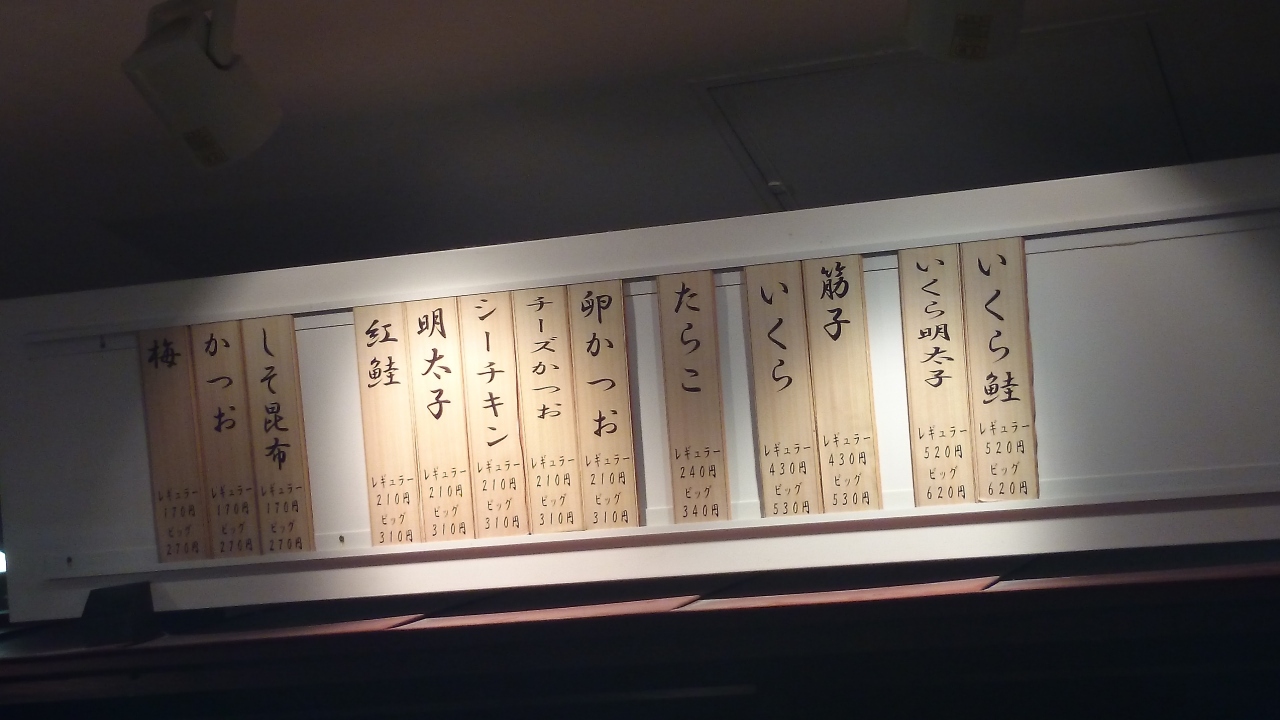 梅
レギュラー
170円
ビッグ
270円
かつお
レギュラー
170円
ビッグ
270円
しそ昆布
レギュラー
170円
ビッグ
270円
紅鮭
レギュラー
210円
ビッグ
310円
明太子
レギュラー
210円
ビッグ
310円
シーチキン
レギュラー
210円
ビッグ
310円
チーズかつお
レギュラー
210円
ビッグ
310円
卵かつお
レギュラー
210円
ビッグ
310円
たらこ
レギュラー
240円
ビッグ
340円
いくら
レギュラー
430円
ビッグ
530円
筋子
レギュラー
430円
ビッグ
530円
いくら明太子
レギュラー
520円
ビッグ
620円
いくら鮭
レギュラー
520円
ビッグ
620円